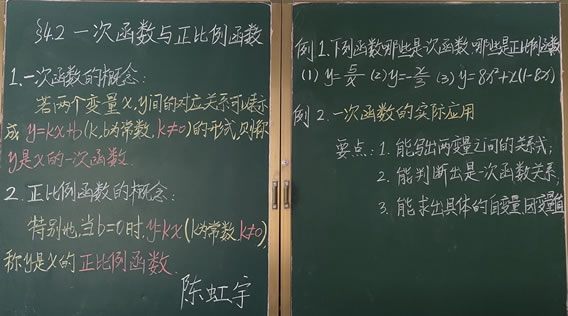 §4.2 一次函数与正比例函数
1.一次函数的概念:
若两个变量x,y间的对应关系可以表示
成 y=kx+b(k,b为常数,k≠0)的形式,则称
y是x的一次函数.
2.正比例函数的概念:
特别地,当b=0时,y=kx(k为常数,k≠0)
称y是x的正比例函数.
陈虹宇
例1.下列函数哪些是一次函数,哪些是正比例函数
(1) y=5/x (2) y=-x/3 (3) y=8x²+x(1-8x)
例 2.一次函数的实际应用
要点:1.能写出两变量之间的关系式;
2.能判断出是一次函数关系;
3.能求出具体的自变量因变量值